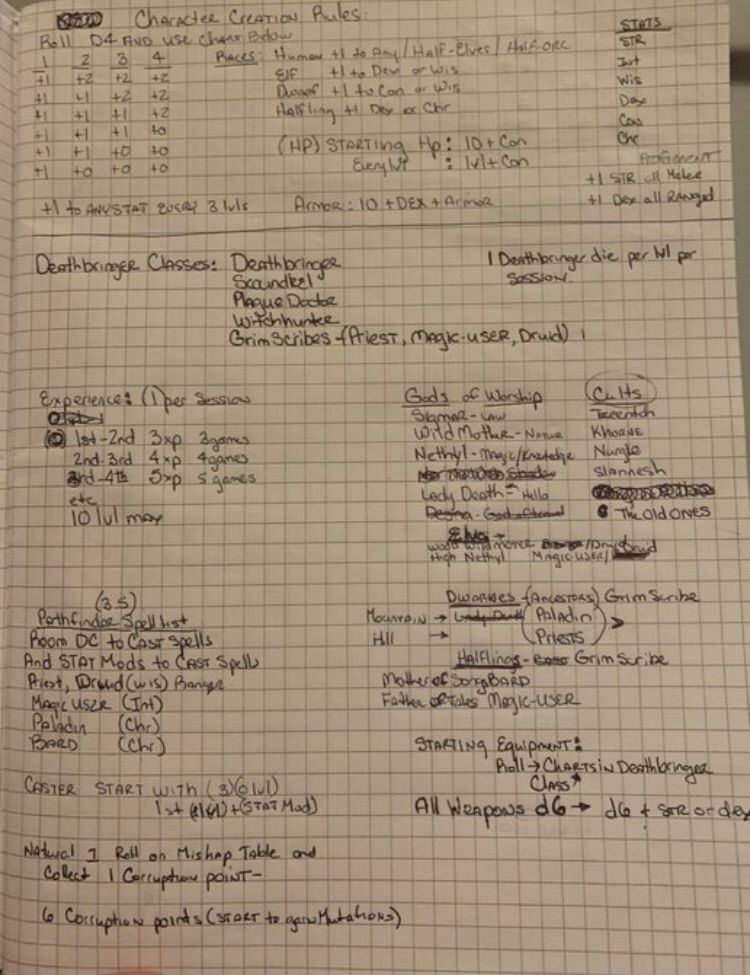 Character Creation Rules:
Roll D4 AND use chart Below
1 2 3 4
+1 +2 +2 +2
+1 +1 +2 +2
+1 +1 +1 +2
+1 +1 +1 +0
+1 +1 +0 +0
+1 +0 +0 +0
Races: Human +1 to Any / Half-Elves / Half-ORC
Elf +1 to Dex or Wis
Dwarf +1 to Con or Wis
Halfling +1 Dex or Chr
(HP) STARTING Hp: 10 + Con
Every lvl : lvl + Con
STATS
STR
Int
Wis
Dex
Con
Chr
Proficient
+1 STR all Melee
+1 Dex all Ranged
+1 to ANY STAT EVERY 3 lvls
Armor: 10 + DEX + Armor
Deathbringer Classes: Deathbringer
Scoundrel
Plague Doctor
Witchhunter
Grim Scribes - (Priest, Magic-user, Druid)
1 Deathbringer die per lvl per
Session
Experience: (1) per Session
1st-2nd 3xp 3 games
2nd-3rd 4xp 4 games
3rd-4th 5xp 5 games
etc
10 lvl max
Gods of Worship
Sigmar - Law
Wild Mother - Nature
Nethyl - Magic/Knowledge
Lady Death - Hella
Elves →
Wood Wildmother /Druid
High Nethyl Magic-user/
Cults
Tzeentch
Khorne
Nurgle
Slannesh
The Old Ones
(3.5)
Pathfinder Spell list
Room DC to Cast spells
And STAT Mods to Cast Spells
Priest, Druid (wis) Ranger
Magic user (Int)
Paladin (Chr)
BARD (Chr)
Dwarves - (Ancestors) Grim Scribe
Mountain → (Paladin)
Hill → (Priests)
Halflings - Grim Scribe
Mother of Song BARD
Father of Tales Magic-User
STARTING Equipment:
Roll → Charts in Deathbringer
Class*
All Weapons d6 → d6 + STR or dex
CASTER START with (3) (0 lvl)
1st + (STAT Mod)
Natural 1 Roll on Mishap Table and
Collect 1 Corruption point -
6 Corruption points (START to gain Mutations)